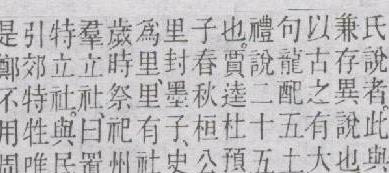 氏說者此與
兼存異說也
以古之有大
句龍配五土
禮說二十五
也賈逵杜預
子春秋桓公
里封墨子史
爲里里有社
歲時祭祀州
羣立社曰置
特立社與民
引郊特牲唯
是鄭不用